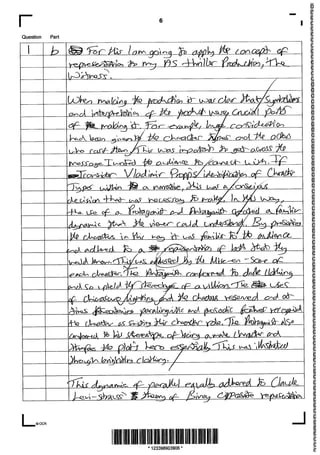 6
Question Part
1 b For this I am going to apply the concept of
representation to my AS thriller Production, 'The
Witness'.
When making the production it was clear that symbolism
and interpretation of the product were crucial parts
of making it. For example, huge consideration
had been given to the character types and the actors
who cast them. This was important to get across the
message I wanted the audience to connect with. If
I consider Vladimir Propp's identification of Character
Types within a narrative, this was a conscious
decision that was necessary to make. In this way,
the use of a Protagonist and Antagonist created a familiar
dynamic that the viewer could understand. By presenting
the characters in this way it was familiar to the audience
and adhered to a representation of both that they
would know. This was addressed by the Mise-en-scene of
each character. The Antagonist conformed to dark clothing
and so upheld the stereotype of a villain. The uses
of chiaroscuro lighting and the character reserved and at
times paralinguistic and prosodic features
the character as this character role. The Protagonist also
conformed to his stereotype of being a male character and
the plot's hero essentially. This was illustrated
through brighter clothing.
This dynamic of parallel equally adhered to Claude
Levi-Strauss' theory of Binary opposite representation
OCR